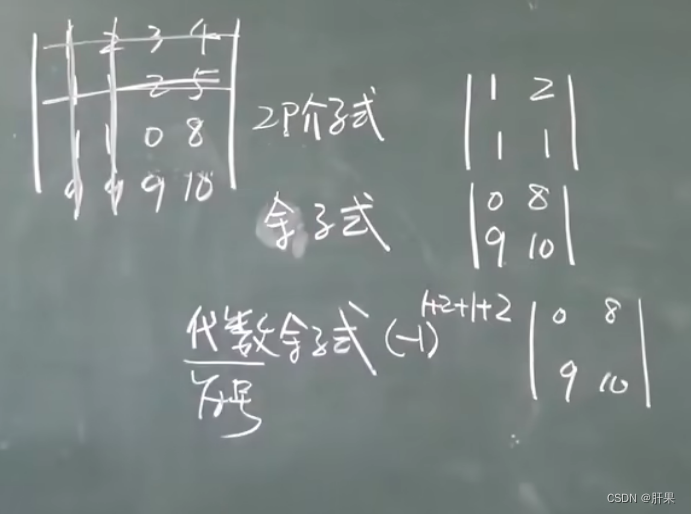 1 2 3 4
1 1 2 5
1 1 0 8
9 9 9 10
2阶子式
1 2
1 1
余子式
0 8
9 10
代数余子式 (-1)^{1+2+1+2}
0 8
9 10
符号
CSDN @肝果